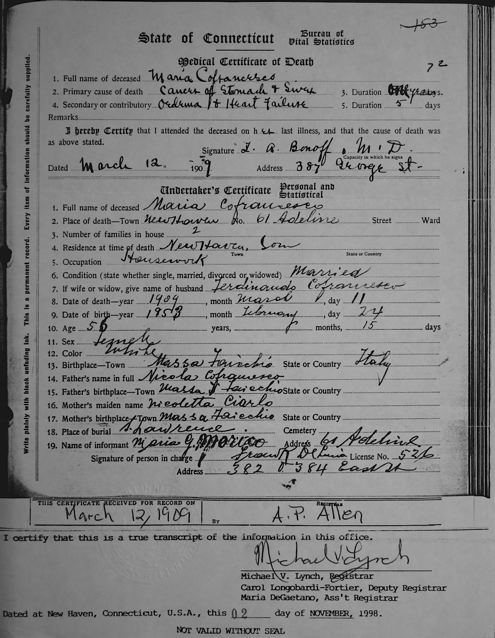 153
State of Connecticut Bureau of Vital Statistics
Medical Certificate of Death
72
1. Full name of deceased Maria Cofrancesco
2. Primary cause of death Cancer of Stomach & Liver 3. Duration years.
4. Secondary or contributory Oedema & Heart Failure 5. Duration 5 days
Remarks
I hereby Certify that I attended the deceased on her last illness, and that the cause of death was
as above stated.
Signature A. Bonoff, M.D.
Capacity in which he signs
Dated March 12. 1909 Address 387 George St.
Undertaker's Certificate Personal and Statistical
1. Full name of deceased Maria Cofrancesco
2. Place of death—Town New Haven No. 61 Adeline Street Ward
3. Number of families in house 2
4. Residence at time of death New Haven, Con
Town State or Country
5. Occupation Housework
6. Condition (state whether single, married, divorced or widowed) Married
7. If wife or widow, give name of husband Ferdinando Cofrancesco
8. Date of death—year 1909, month March, day 11
9. Date of birth—year 1853, month February, day 24
10. Age 56 years, months, 15 days
11. Sex Female
12. Color White
13. Birthplace—Town Massa Faicchio State or Country Italy
14. Father's name in full Nicola Cofrancesco
15. Father's birthplace—Town Massa Faicchio State or Country
16. Mother's maiden name Nicoletta Ciarlo
17. Mother's birthplace—Town Massa Faicchio State or Country
18. Place of burial S. Lawrence Cemetery
19. Name of informant Maria G. Address 61 Adeline
Signature of person in charge License No. 526
Address 382 384 East St
THIS CERTIFICATE RECEIVED FOR RECORD ON
March 12, 1909 By A.P. Allen
Registrar
I certify that this is a true transcript of the information in this office.
Michael V. Lynch
Michael V. Lynch, Registrar
Carol Longobardi-Fortier, Deputy Registrar
Maria DeGaetano, Ass't Registrar
Dated at New Haven, Connecticut, U.S.A., this 02 day of NOVEMBER, 1998.
NOT VALID WITHOUT SEAL
Write plainly with black unfading ink. This is a permanent record. Every item of information should be carefully supplied.